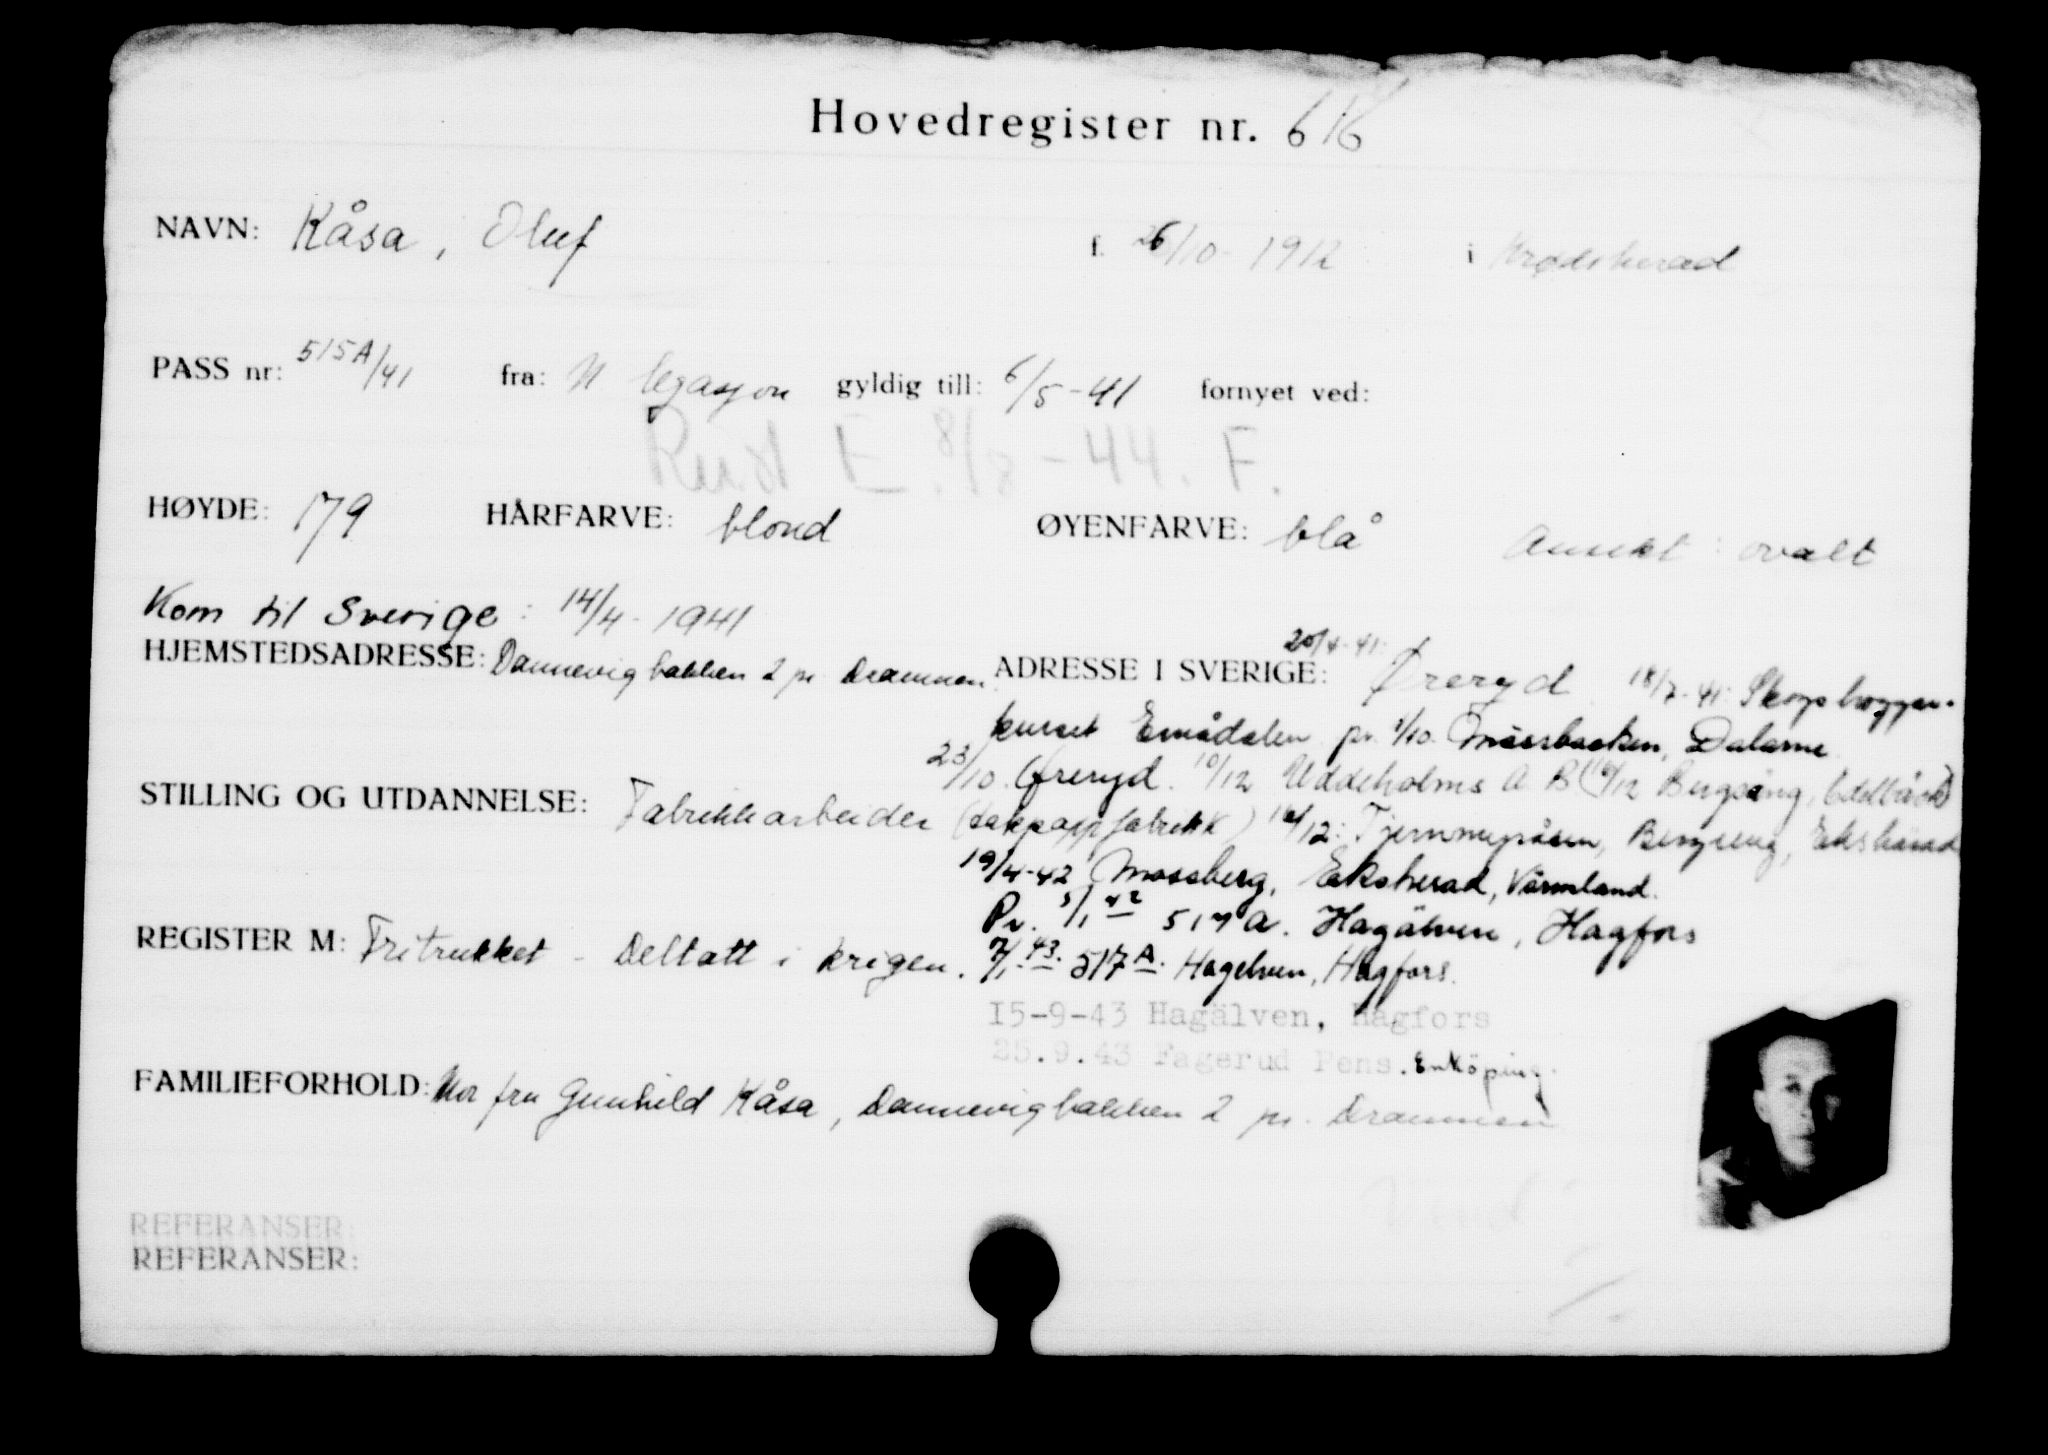 Hovedregister nr. 616
NAVN: Kåsa, Oluf f. 26/10-1912 i Krødsherad
PASS nr: 515A/41 fra: N legasjon gyldig till: 6/5-41 fornyet ved:
E. 8/8-44. F.
HØYDE: 179 HÅRFARVE: blond ØYENFARVE: blå Ansikt: ovalt
Kom til Sverige: 14/4-1941
HJEMSTEDSADRESSE: Dannevigbakken 2 pr Drammen
ADRESSE I SVERIGE: 20/4-41: Øreryd 18/7-41: Skogshogger-
kurset Emådalen pr. 1/10. Mässbacken, Dalarne
23/10. Øreryd. 10/12 Uddeholms A.B (16/12 Bergsäng, Edebäck)
STILLING OG UTDANNELSE: Fabrikkarbeider (takpappfabrikk) 16/12: Bergseng, Ekshärad
19/4-42 Mossberg, Eksherad, Värmland.
Pr. 5/1 42 517a. Hagälven, Hagfors
REGISTER M: Fritrukket - Deltatt i krigen. 7/1-43. 517A. Hagelven, Hagfors.
15-9-43 Hagälven, Hagfors
25.9.43 Fagerud Pens. Enköping.
FAMILIEFORHOLD: Mor fru Gunhild Kåsa, Dannevigbakken 2 pr. Drammen
REFERANSER:
REFERANSER: